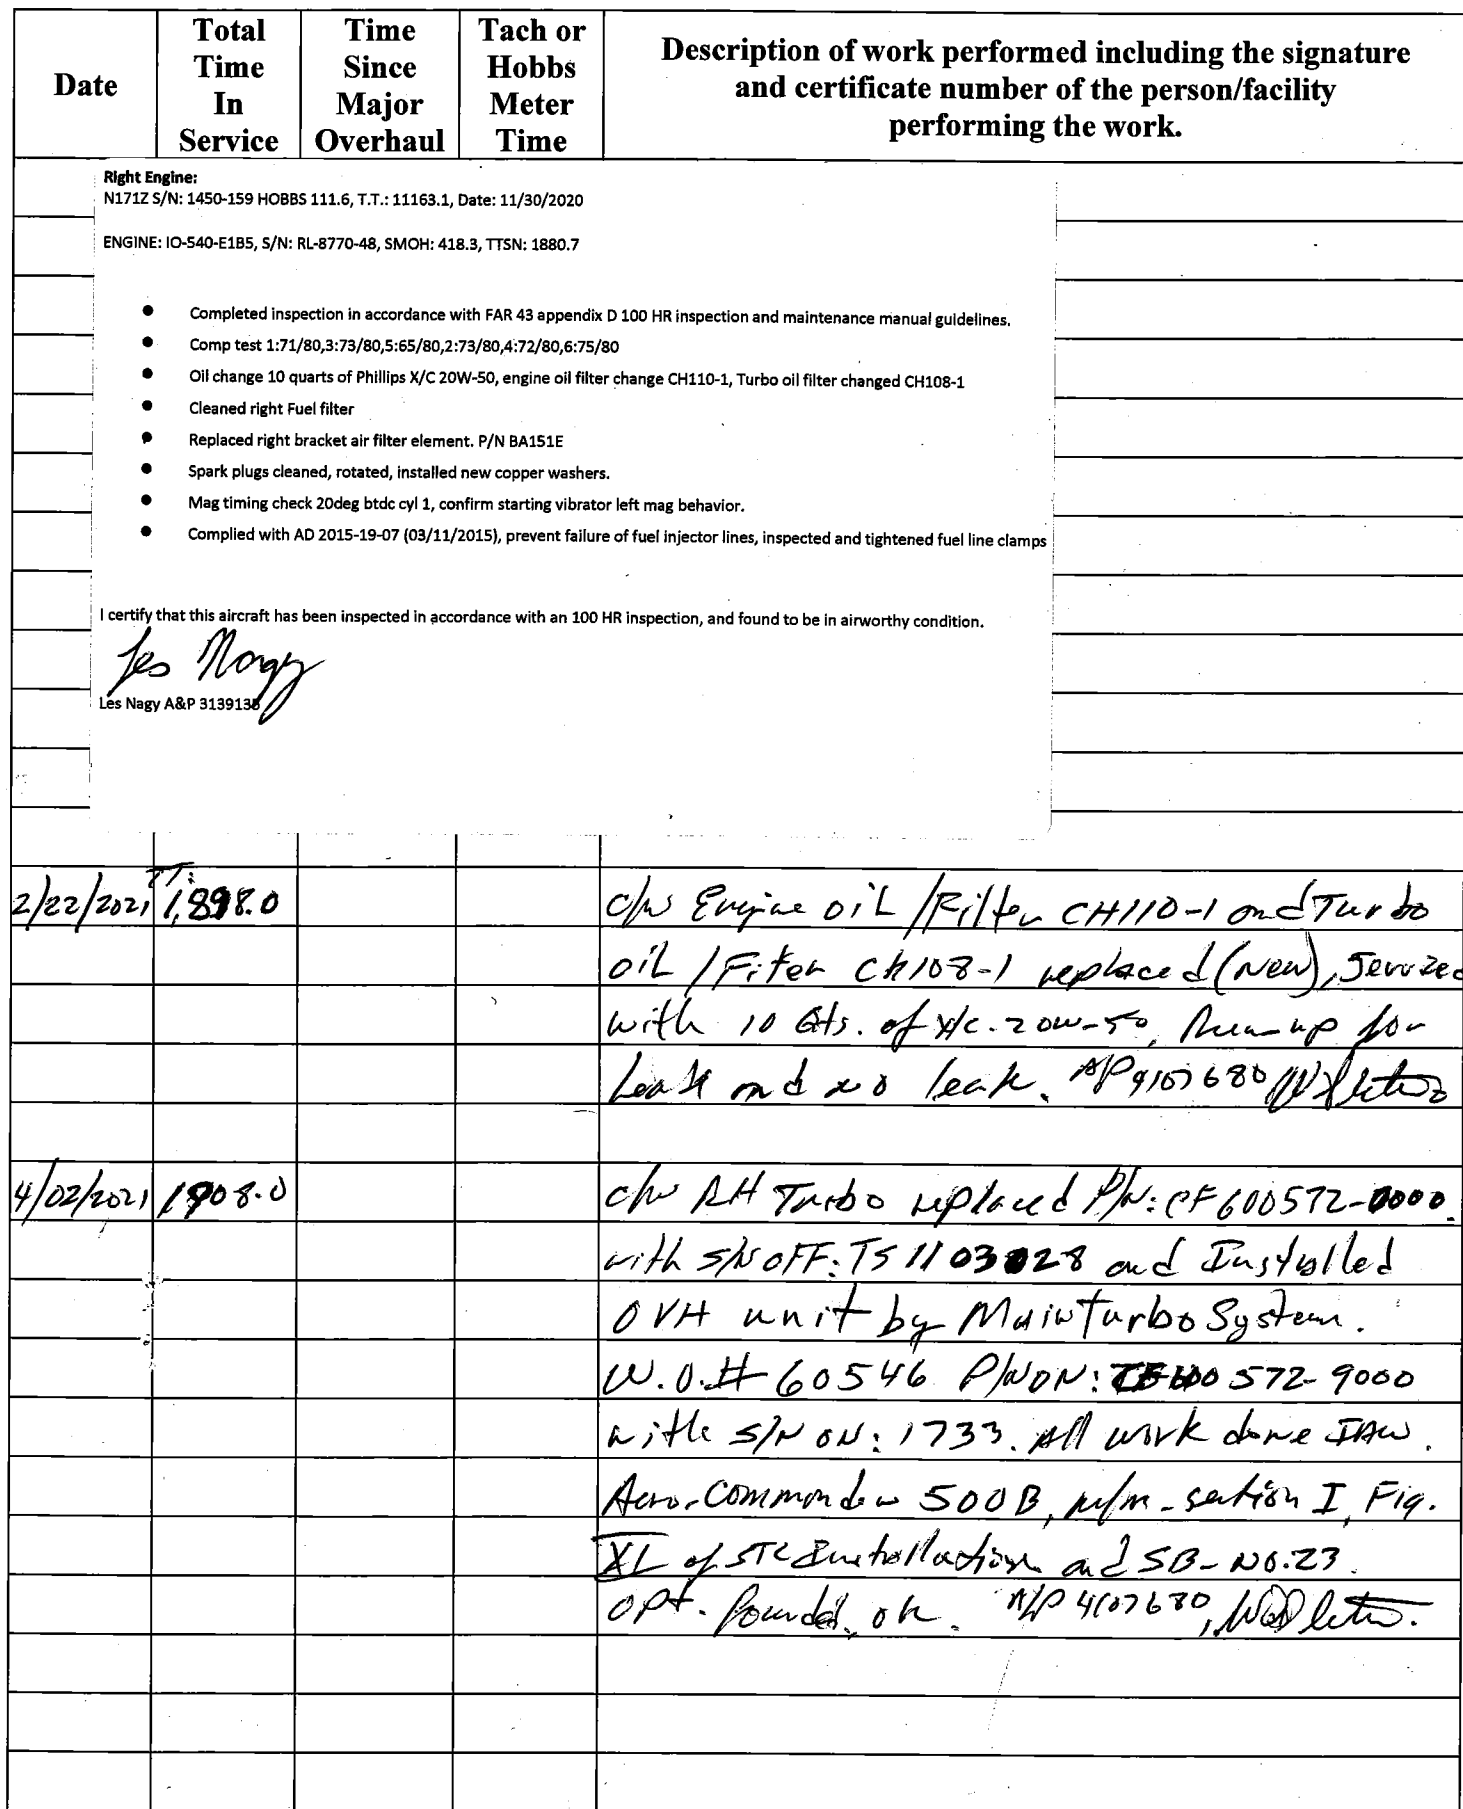 Date
Total Time In Service
Time Since Major Overhaul
Tach or Hobbs Meter Time
Description of work performed including the signature
and certificate number of the person/facility
performing the work.
Right Engine:
N171Z S/N: 1450-159 HOBBS 111.6, T.T.: 11163.1, Date: 11/30/2020
ENGINE: IO-540-E1B5, S/N: RL-8770-48, SMOH: 418.3, TTSN: 1880.7
● Completed inspection in accordance with FAR 43 appendix D 100 HR inspection and maintenance manual guidelines.
● Comp test 1:71/80,3:73/80,5:65/80,2:73/80,4:72/80,6:75/80
● Oil change 10 quarts of Phillips X/C 20W-50, engine oil filter change CH110-1, Turbo oil filter changed CH108-1
● Cleaned right Fuel filter
● Replaced right bracket air filter element. P/N BA151E
● Spark plugs cleaned, rotated, installed new copper washers.
● Mag timing check 20deg btdc cyl 1, confirm starting vibrator left mag behavior.
● Complied with AD 2015-19-07 (03/11/2015), prevent failure of fuel injector lines, inspected and tightened fuel line clamps
I certify that this aircraft has been inspected in accordance with an 100 HR inspection, and found to be in airworthy condition.
Les Nagy
Les Nagy A&P 3139135
2/22/2021 TT: 1,898.0 c/w Engine oil /Filter CH110-1 and Turbo
oil /Fiter CH108-1 replaced (New), Serviced
with 10 Qts. of X/C. 20W-50, Run-up for
Leak and no leak. A/P
4/02/2021 1908.0 c/w RH Turbo replaced P/N: CF600572-9000.
with S/N OFF: TS1103028 and Installed
OVH unit by Main Turbo System.
W.O.# 60546 P/N ON: 572-9000
with S/N ON: 1733. All work done IAW.
Aero-Commander 500B, m/m-section I, Fig.
XL of STC Installation and SB-NO.23.
opt. found ok. A/P 4107680,